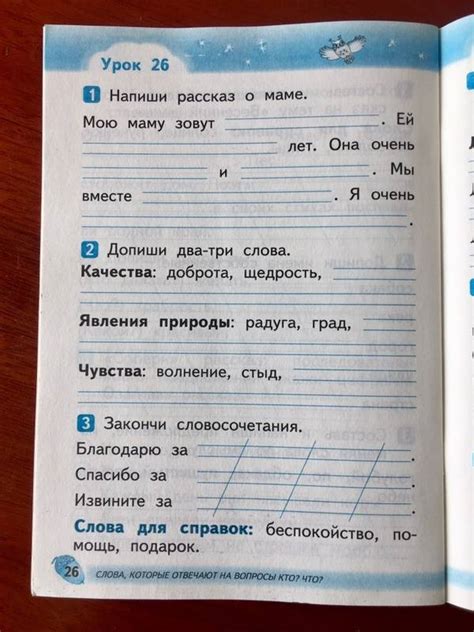 Урок 26
1 Напиши рассказ о маме.
Мою маму зовут . Ей
лет. Она очень
и . Мы
вместе . Я очень
.
2 Допиши два-три слова.
Качества: доброта, щедрость,
Явления природы: радуга, град,
Чувства: волнение, стыд,
3 Закончи словосочетания.
Благодарю за .
Спасибо за .
Извините за .
Слова для справок: беспокойство, по-
мощь, подарок.
26 СЛОВА, КОТОРЫЕ ОТВЕЧАЮТ НА ВОПРОСЫ КТО? ЧТО?